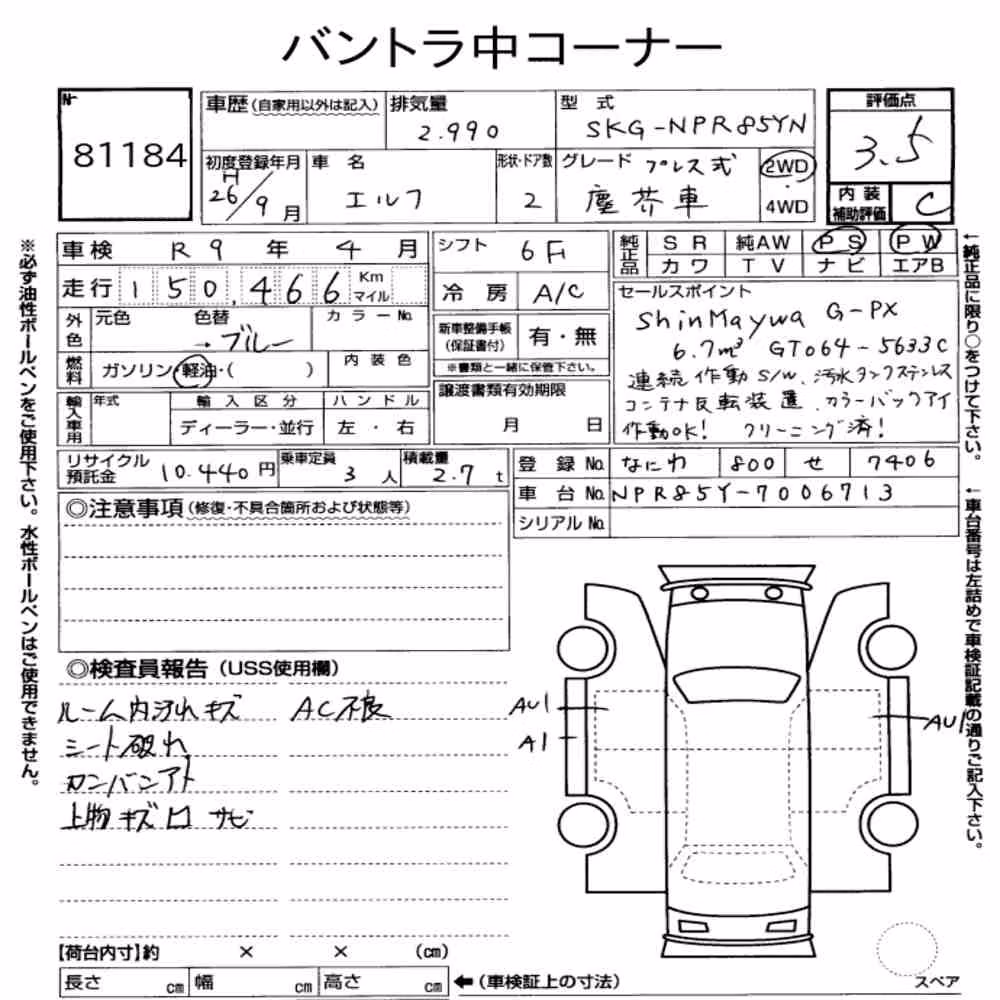 バントラ中コーナー
№ 81184
車歴(自家用以外は記入)
排気量 2.990
型式 SKG-NPR85YN
評価点 3.5
初度登録年月 H26/9月
車名 エルフ
形状・ドア数 2
グレード プレス式 塵芥車
2WD・4WD
内装補助評価 C
車検 R9年4月
シフト 6F
純正品 SR 純AW PS PW
カワ TV ナビ エアB
走行 150,466 Km マイル
冷房 A/C
セールスポイント
ShinMaywa G-PX
6.7m³ GT064-5633C
連続作動S/W、汚水タンクステンレス
コンテナ反転装置、カラーバックアイ
作動OK! クリーニング済!
外色 元色 色替 →ブルー カラーNo.
新車整備手帳(保証書付) 有・無
※書類と一緒に保管下さい。
燃料 ガソリン・軽油・( ) 内装色
譲渡書類有効期限 月 日
輸入車用 年式 輸入区分 ハンドル
ディーラー・並行 左・右
リサイクル預託金 10.440円
乗車定員 3人
積載量 2.7t
登録No. なにわ 800 せ 7406
車台No. NPR85Y-7006713
シリアルNo.
◎注意事項(修復・不具合箇所および状態等)
◎検査員報告(USS使用欄)
ルーム内汚れキズ AC不良
シート破れ
カンバンアト
上物キズ凹サビ
AU1
A1
AU1
【荷台内寸】約 × × (cm)
長さ cm 幅 cm 高さ cm ←(車検証上の寸法)
スペア
※必ず油性ボールペンをご使用下さい。水性ボールペンはご使用できません。
←純正品に限り○をつけて下さい。
←車台番号は左詰めで車検証記載の通りご記入下さい。